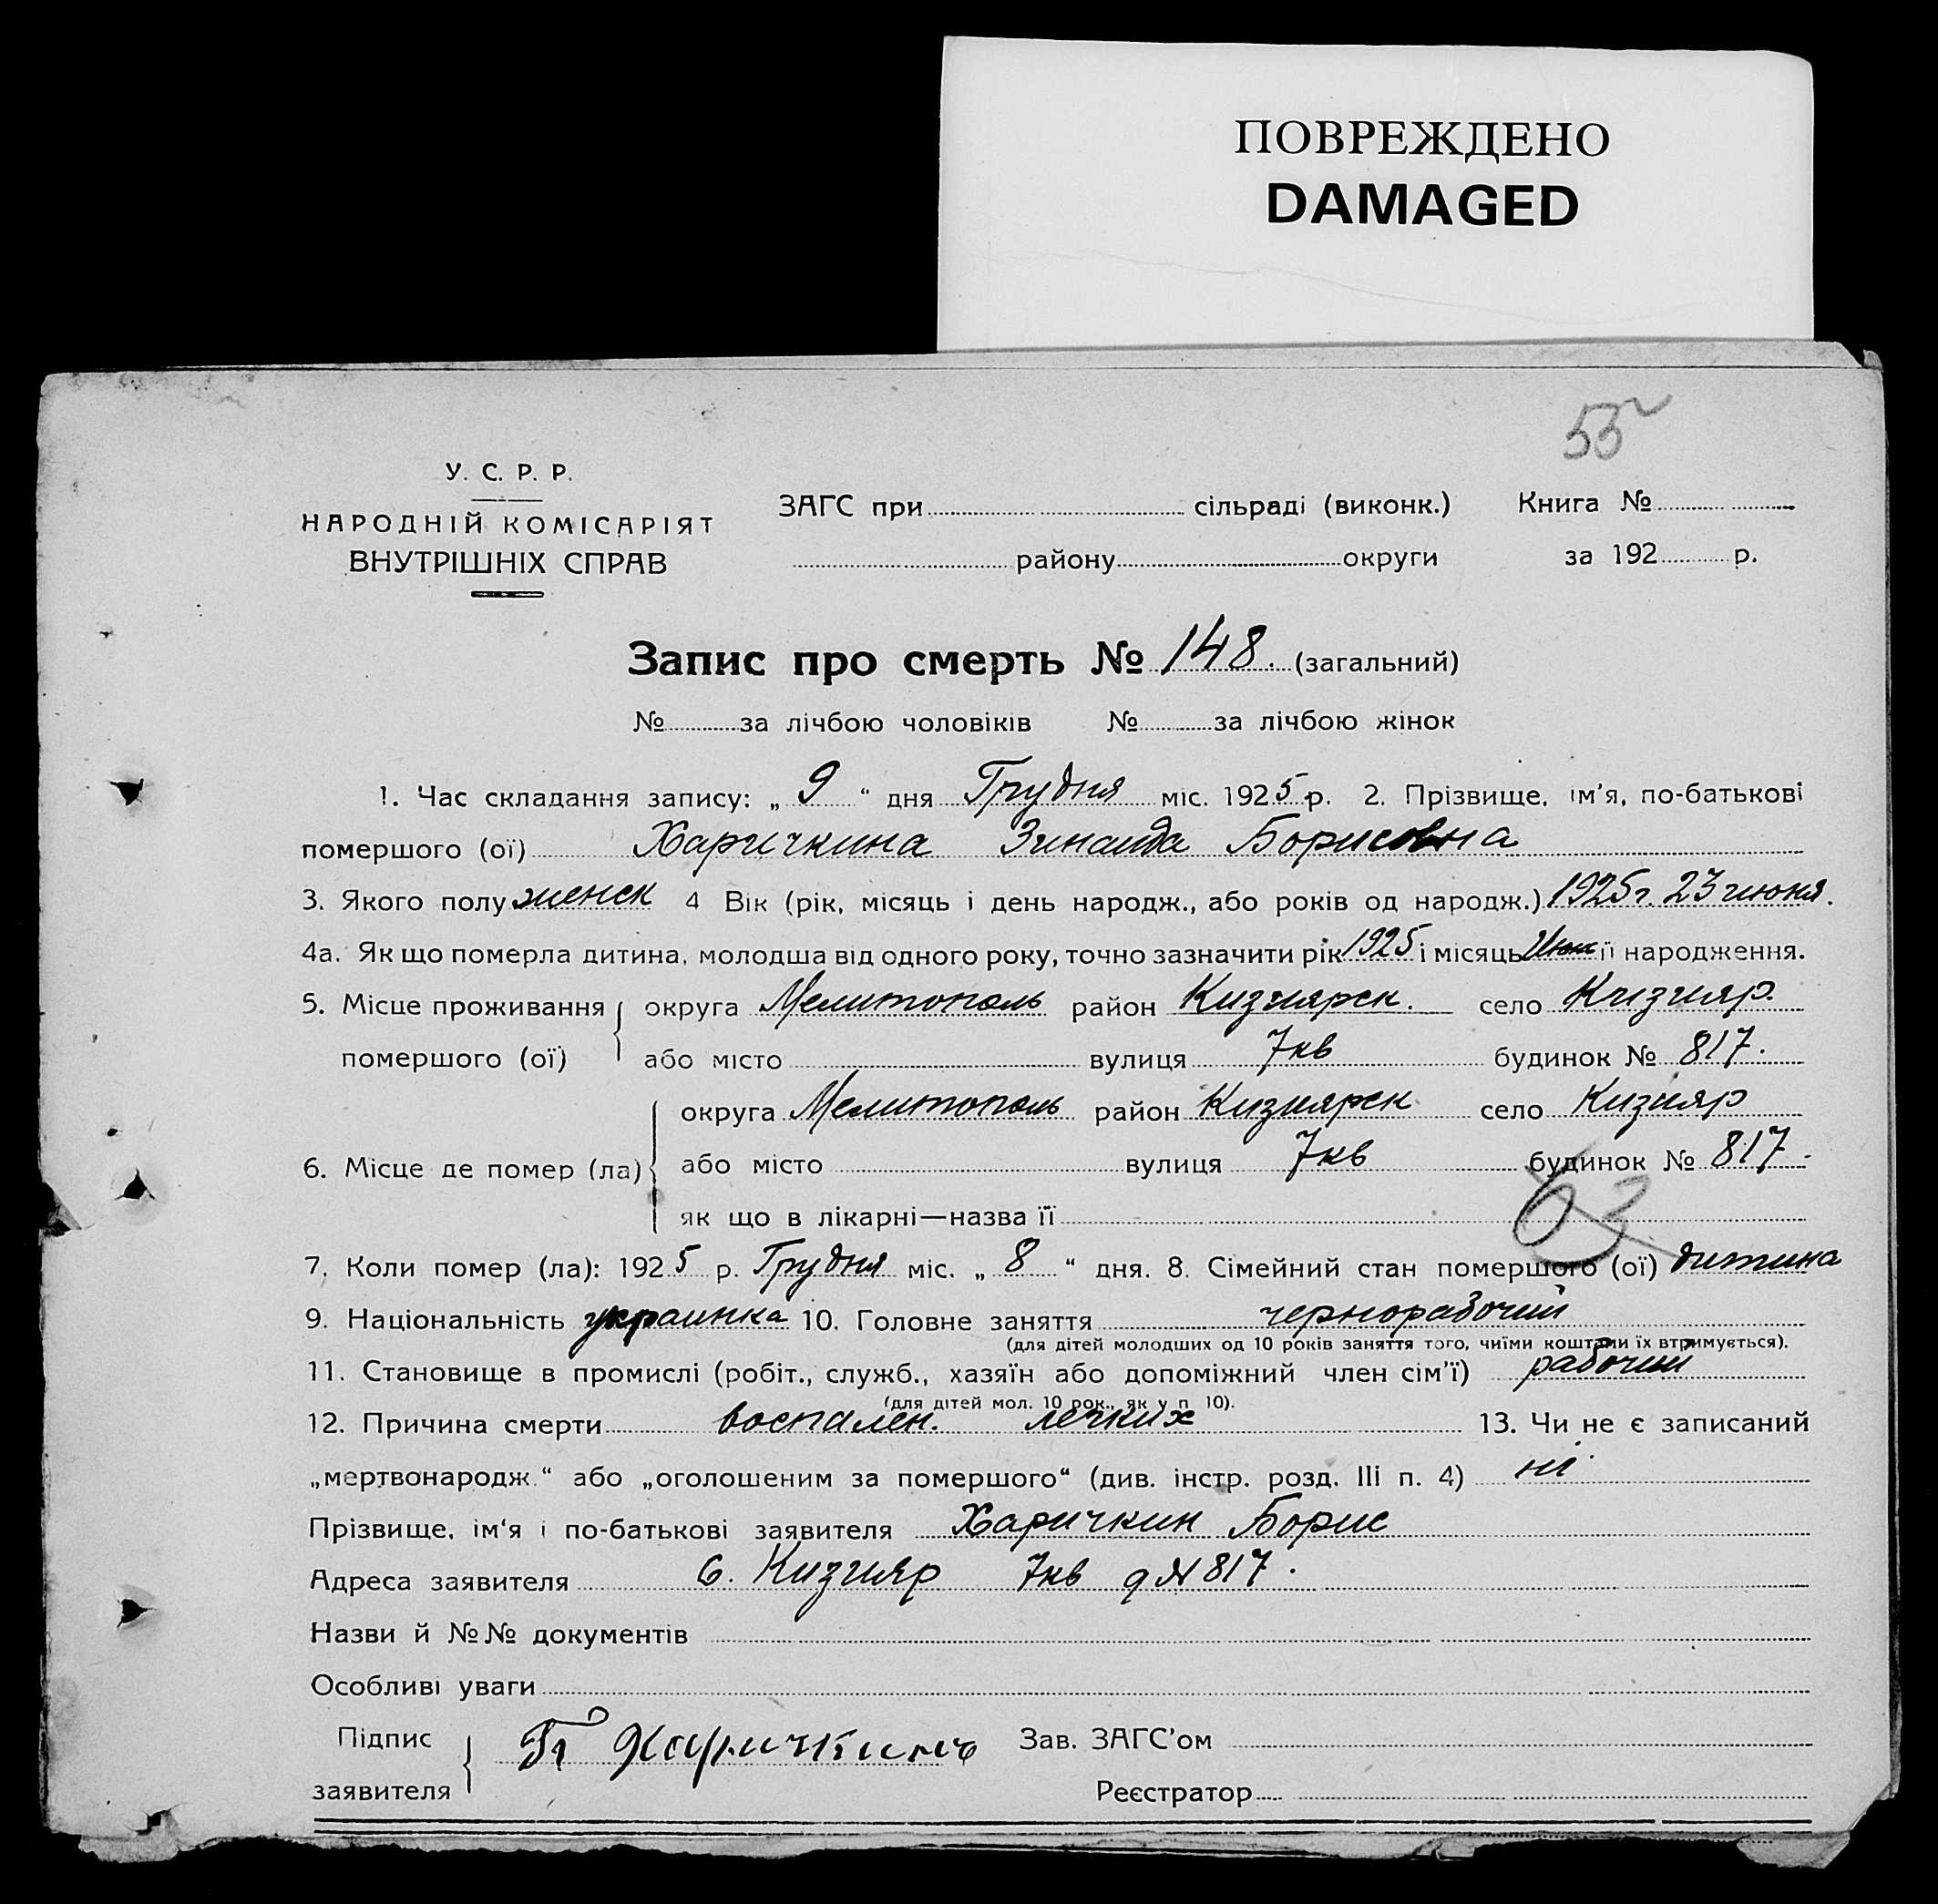 ПОВРЕЖДЕНО
DAMAGED
55
У. С. Р. Р.
НАРОДНІЙ КОМІСАРІЯТ
ВНУТРІШНІХ СПРАВ
ЗАГС при сільраді (виконк.) Книга №
району округи за 192 р.
Запис про смерть № 148. (загальний)
№ за лічбою чоловіків № за лічбою жінок
1. Час складання запису: „ 9 “ дня Грудня міс. 1925 р. 2. Прізвище, ім'я, по-батькові
помершого (ої) Харичкина Зинаида Борисовна
3. Якого полу женск 4 Вік (рік, місяць і день народж., або років од народж.) 1925г. 23 июня.
4а. Як що померла дитина, молодша від одного року, точно зазначити рік 1925 і місяць Июн її народження.
5. Місце проживання округа Мелитополь район Кизиярск. село Кизияр.
помершого (ої) або місто вулиця 7кв будинок № 817.
округа Мелитополь район Кизиярск село Кизияр
6. Місце де помер (ла) або місто вулиця 7кв будинок № 817.
як що в лікарні—назва її
63
7. Коли помер (ла): 1925 р. Грудня міс. „ 8 “ дня. 8. Сімейний стан помершого (ої) дитина
9. Національність украинка 10. Головне заняття чернорабочий
(для дітей молодших од 10 років заняття того, чиїми коштами їх втримується).
11. Становище в промислі (робіт., служб., хазяїн або допоміжний член сім'ї) рабочий
(для дітей мол. 10 рок., як у п 10).
12. Причина смерти воспален. легких 13. Чи не є записаний
„мертвонародж.“ або „оголошеним за помершого“ (див. інстр. розд. III п. 4) ні
Прізвище, ім'я і по-батькові заявителя Харичкин Борис
Адреса заявителя с. Кизияр 7кв д № 817.
Назви й №№ документів
Особливі уваги
Підпис Б Харичкинъ Зав. ЗАГС'ом
заявителя Реєстратор